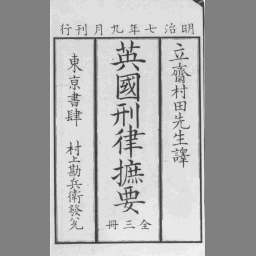 明治七年九月刊行
立齋村田先生譯
英國刑律摭要
全三冊
東京書肆 村上勘兵衛發兌